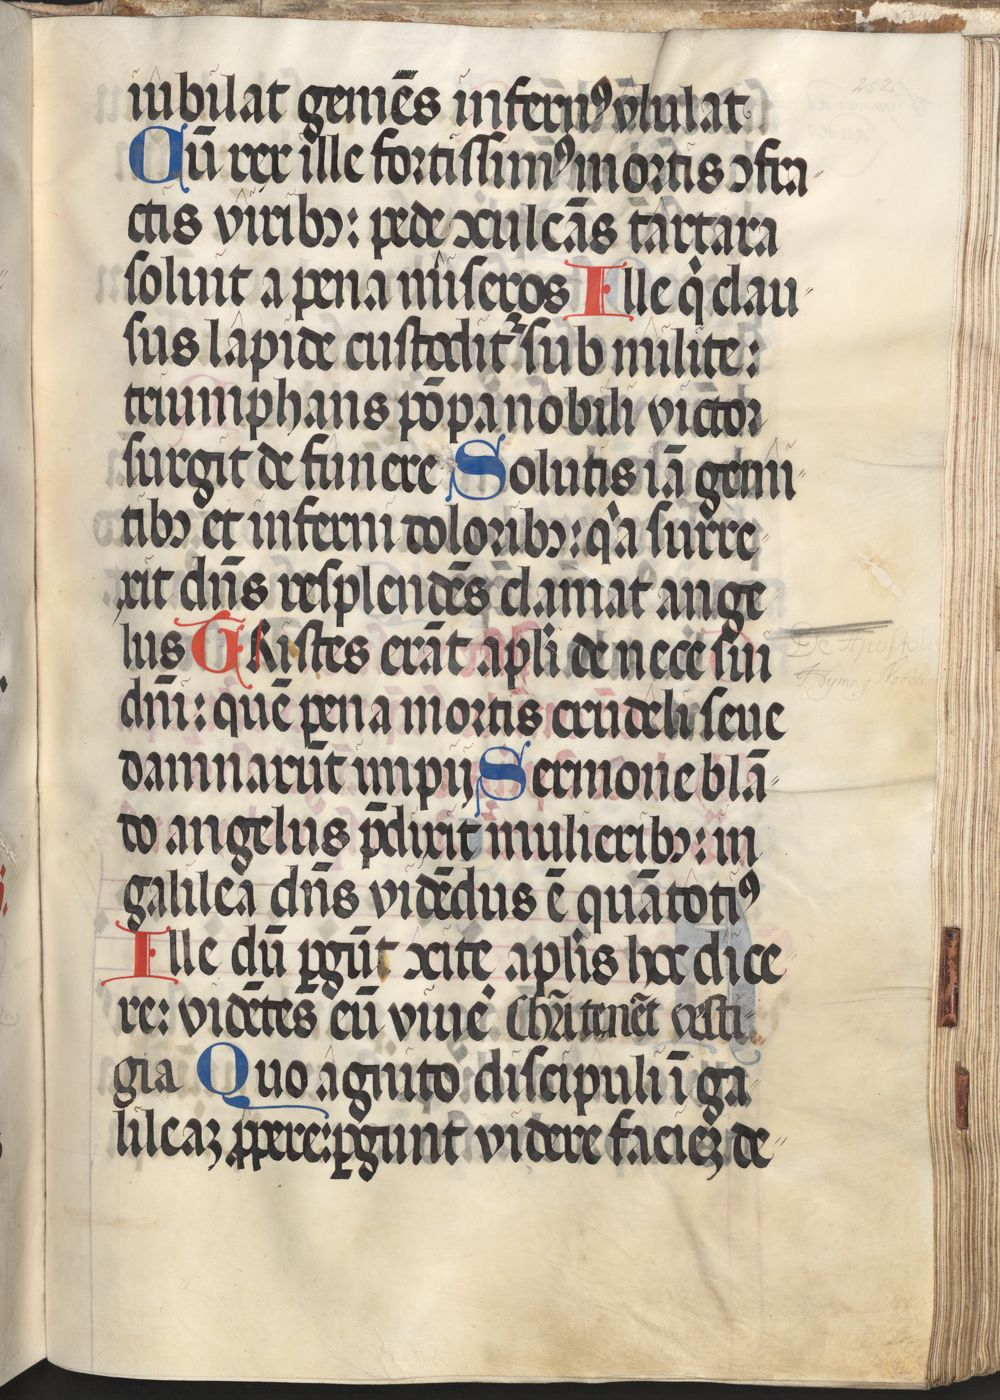 iubilat gemēs infernꝰ vlulat
Cū rex ille fortissimꝰ mortis ɔfra
ctis viribꝫ: pede ɔculcās tartara
soluit a pena miseros Ille qͥ clau
sus lapide custoditᷣ sub milite:
triumphans pōpa nobili victor
surgit de funere Solutis iā gemi
tibꝫ et inferni doloribꝫ: qͥa surre
xit dn̄s resplendēs clamat ange
lus Tristes erāt apli de nece sui
dn̄i: quē pena mortis crudeli seue
damnarūt impij Sermone blā
do angelus p̄dixit mulieribꝫ: in
galilea dn̄s vidēdus ē quātotiꝰ
Ille dū ꝑgūt ɔcite aplis hoc dice
re: vidētes eū viuē Chr̄i tenēt vesti
gia Quo agnito discipuli ī ga
lileaꝫ ꝓpere: ꝑgunt videre facieꝫ de
252
De Apostolis
Hymnꝰ